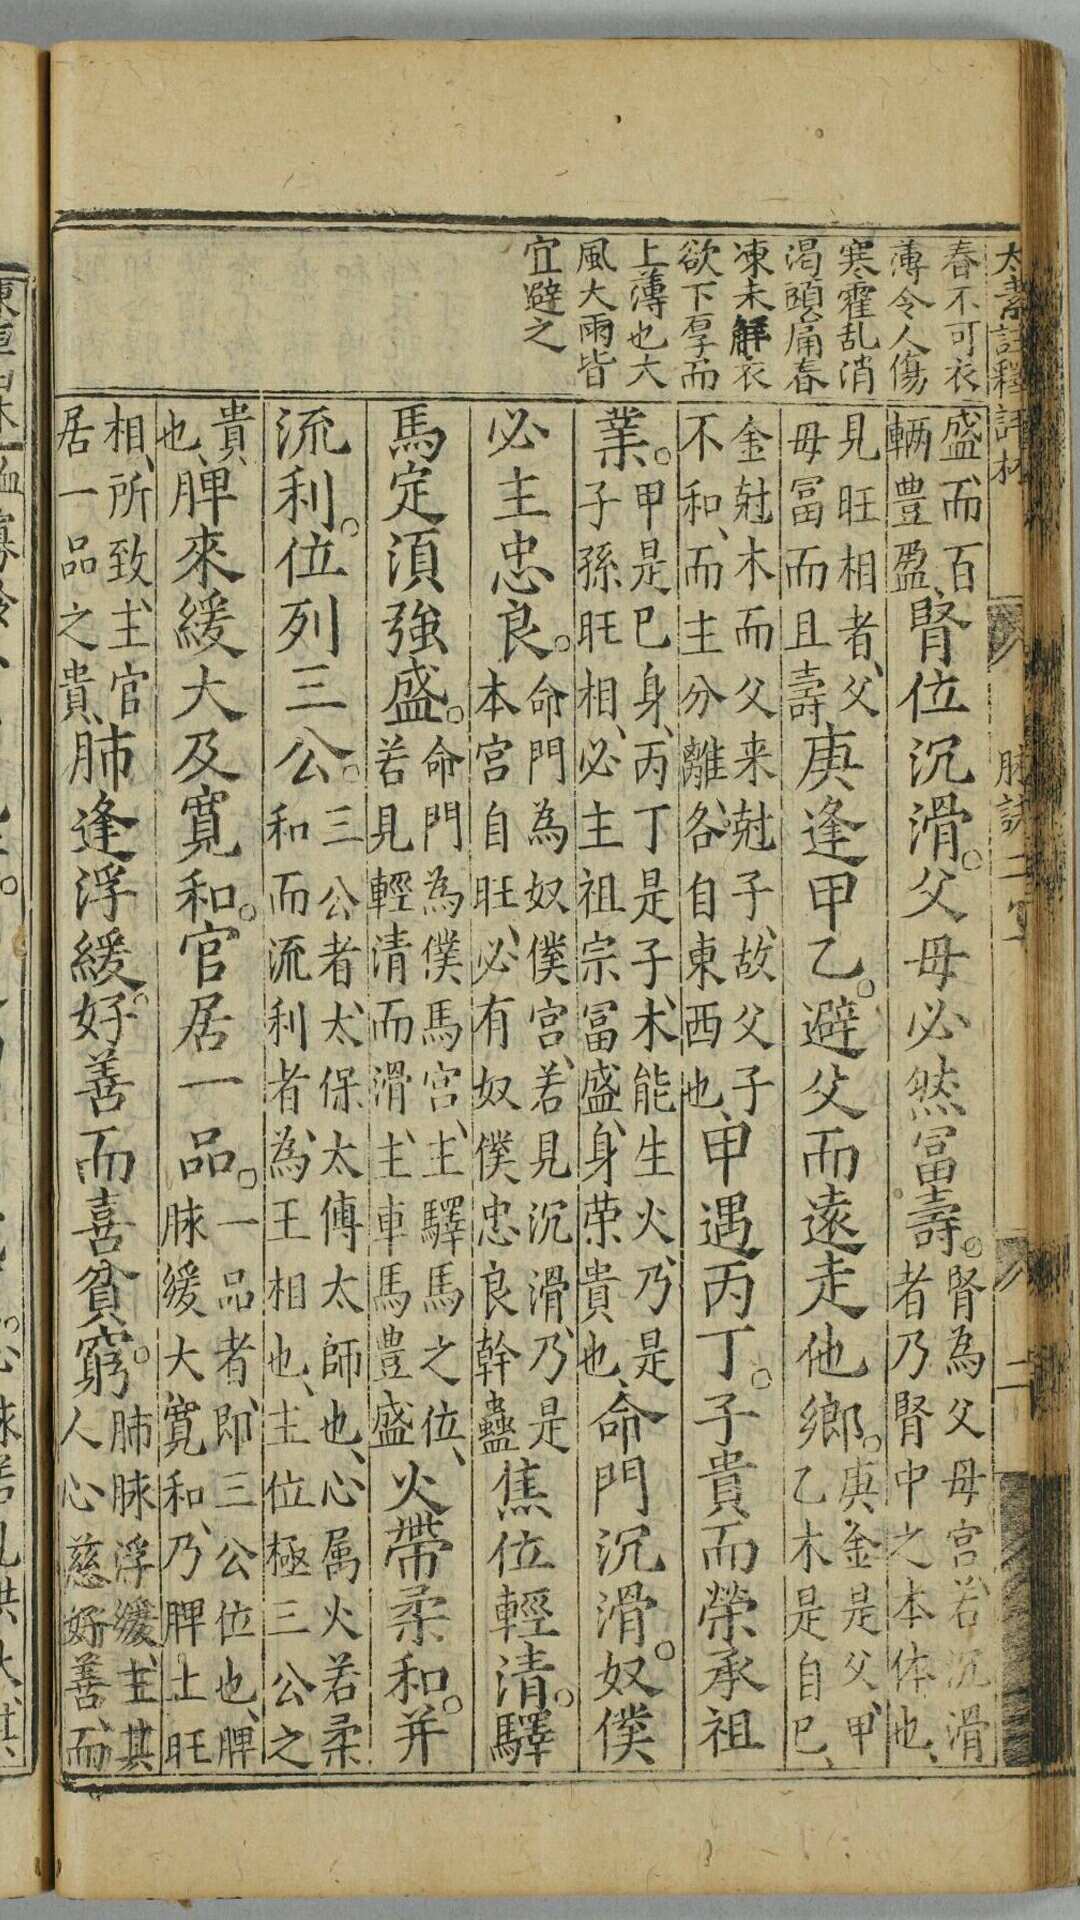 太素註釋評林
脉訣二
二
春不可衣
薄令人傷
寒霍乱消
渴頭痛春
凍未解衣
欲下厚而
上薄也大
風大雨皆
宜避之
盛、而百
輌豊盈、
腎位沉滑。父母必然冨壽。
腎為父母宫、若沉滑
者乃腎中之本体也、
見旺相者、父
母冨而且壽
庚逢甲乙。避父而遠走他鄉。
庚、金是父、甲
乙木是自巳、
金尅木而父来尅子、故父子
不和、而主分離、各自東西也、
甲遇丙丁。子貴而榮承祖
業。
甲是巳身、丙丁是子、木能生火、乃是
子孫旺相、必主祖宗冨盛、身荣貴也、
命門沉滑。奴僕
必主忠良。
命門為奴僕宫、若見沉滑、乃是
本宫自旺、必有奴僕忠良幹蠱
焦位輕清。驛
馬定須強盛。
命門為僕馬宫、主驛馬之位、
若見輕清而滑、主車馬豊盛
火帶柔和。并
流利。位列三公。
三公者、太保太傅太師也、心属火若柔
和而流利者、為王相也、主位極三公之
貴、
也、
脾來緩大及寛和。官居一品。
一品者、即三公位也、脾
脉緩大寛和、乃脾土旺
相、所致、主官
居一品之貴、
肺逢浮緩。好善而喜貧窮。
肺脉浮緩、主其
人心慈好善、而